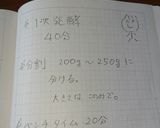 1次発酵
40分
分割 200g～250gに
分ける。
大きさは このみで。
ベンチタイム 20分